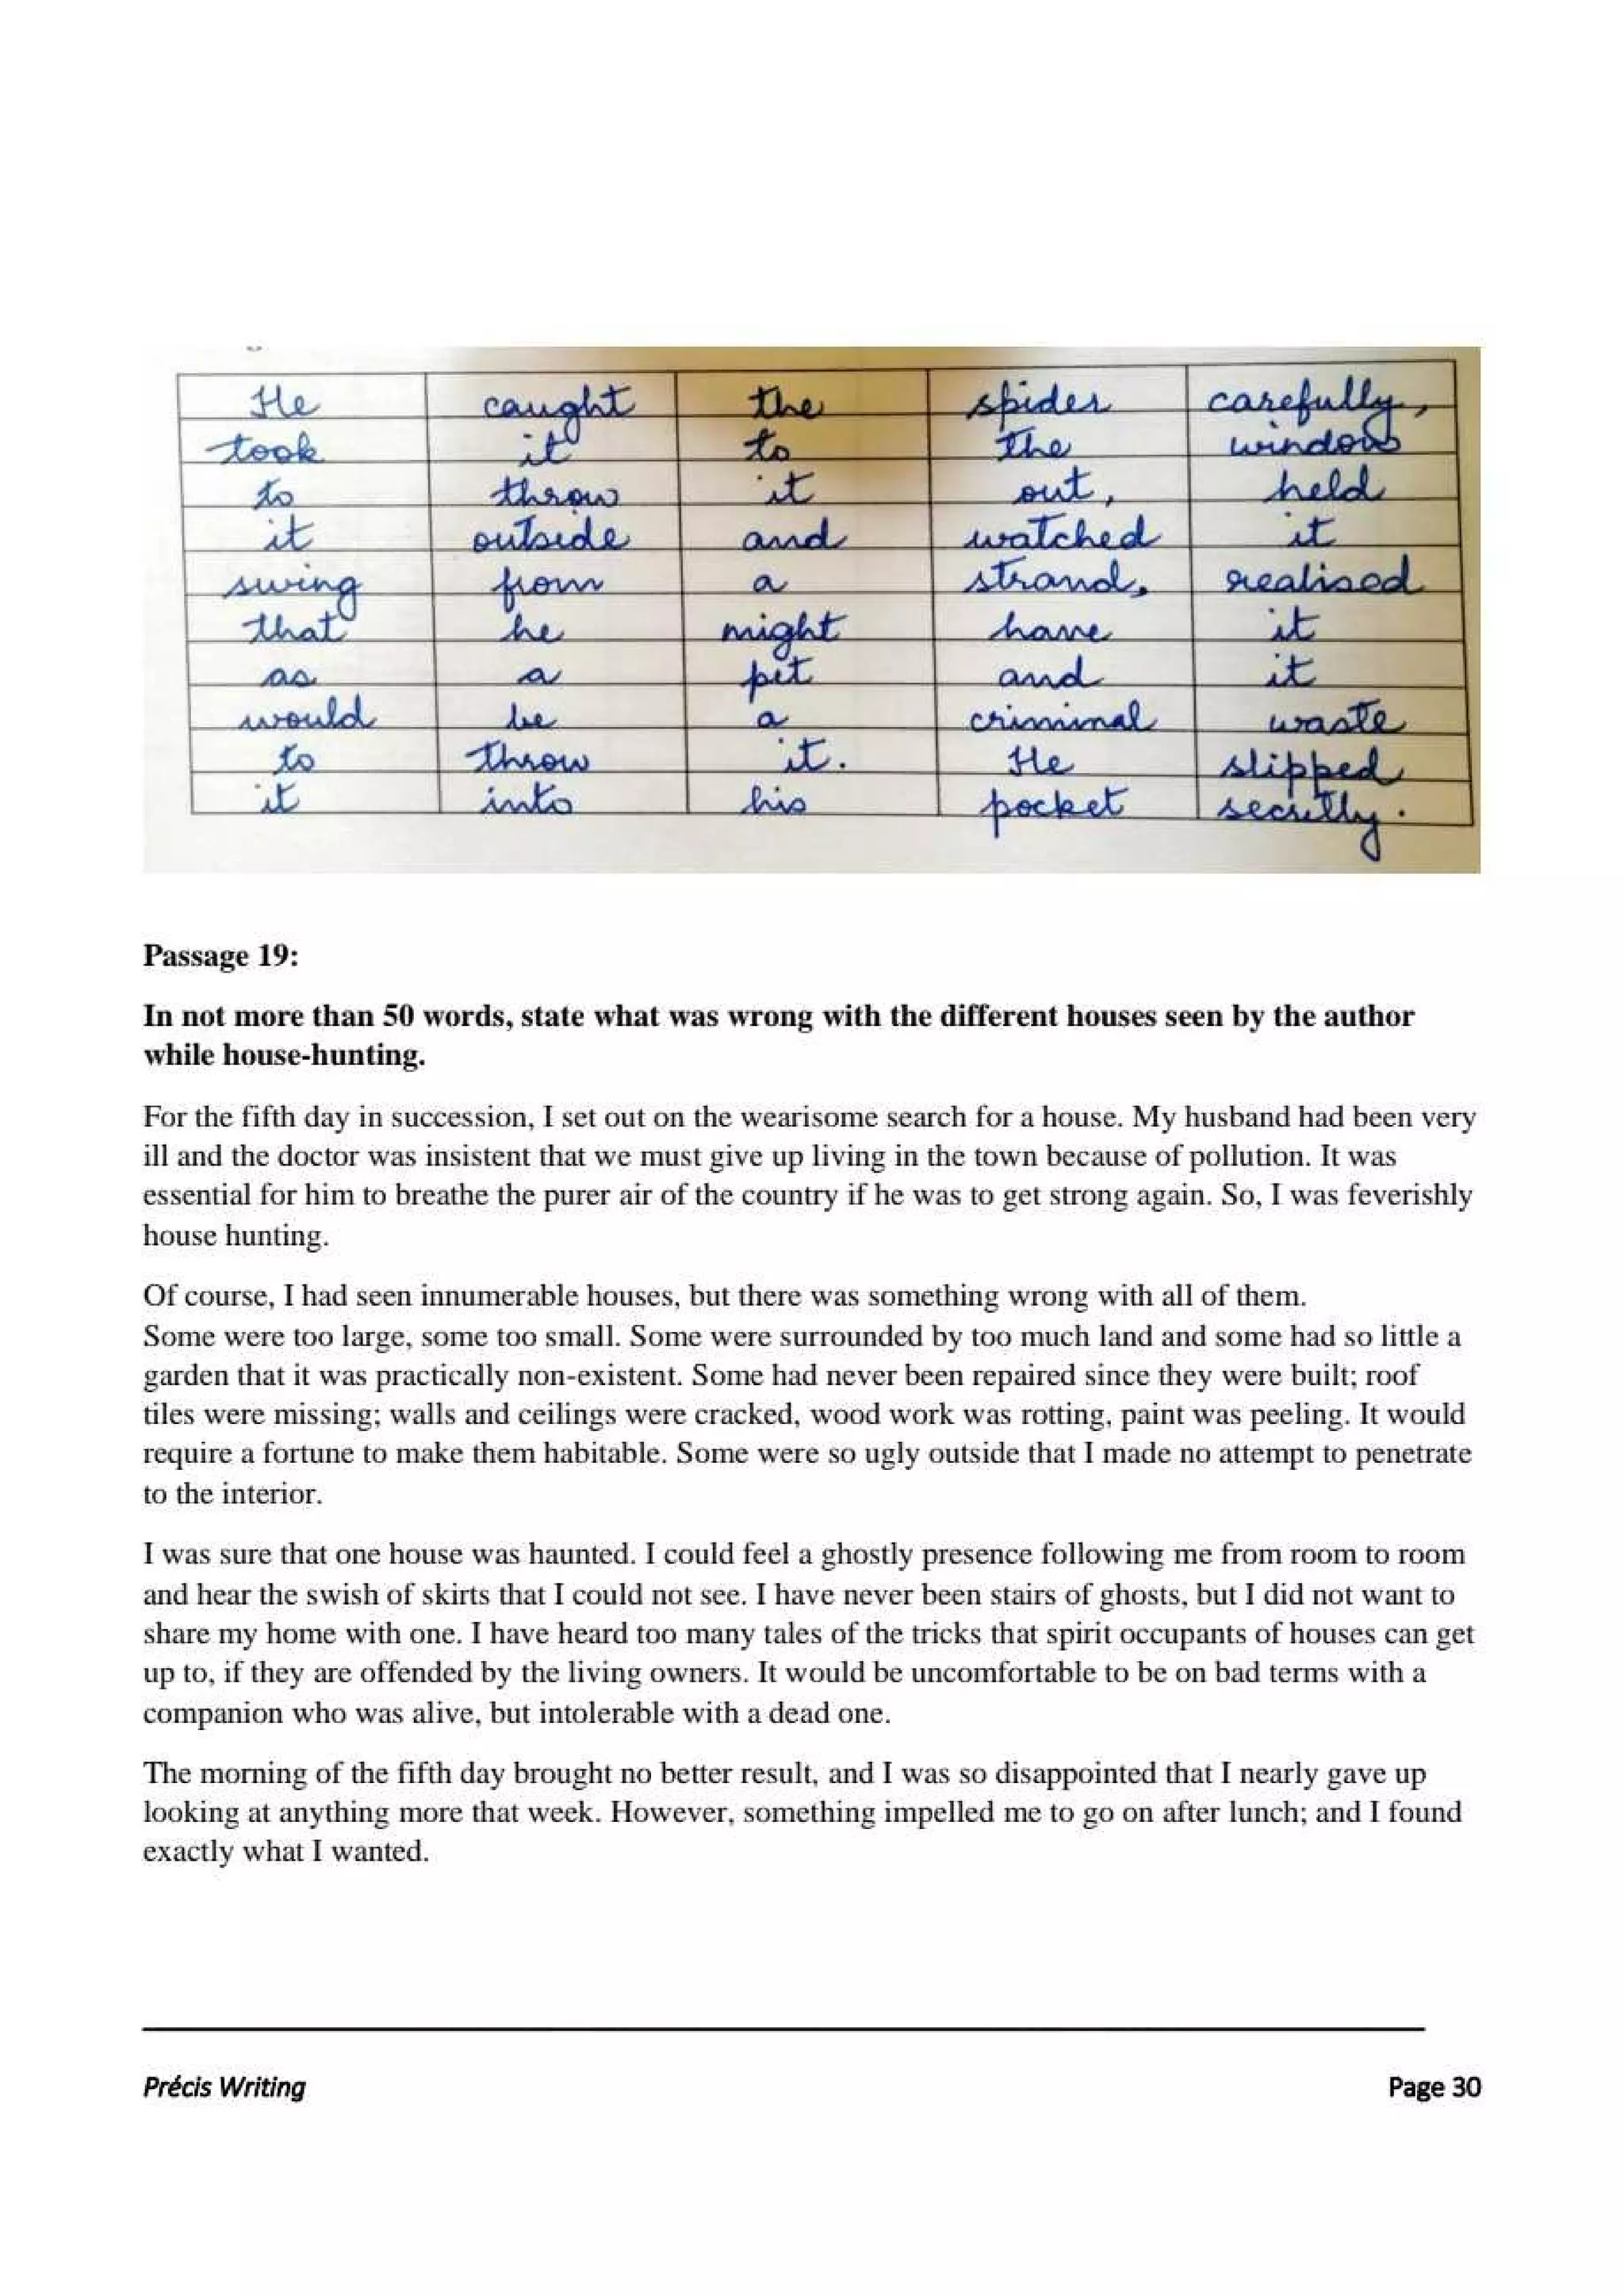 He caught the spider carefully,
took it to the window
to throw it out, held
it outside and watched it
swing from a strand, realised
that he might have it
as a pet and it
would be a criminal waste
to throw it. He slipped
it into his pocket secretly.
Passage 19:
In not more than 50 words, state what was wrong with the different houses seen by the author
while house-hunting.
For the fifth day in succession, I set out on the wearisome search for a house. My husband had been very
ill and the doctor was insistent that we must give up living in the town because of pollution. It was
essential for him to breathe the purer air of the country if he was to get strong again. So, I was feverishly
house hunting.
Of course, I had seen innumerable houses, but there was something wrong with all of them.
Some were too large, some too small. Some were surrounded by too much land and some had so little a
garden that it was practically non-existent. Some had never been repaired since they were built; roof
tiles were missing; walls and ceilings were cracked, wood work was rotting, paint was peeling. It would
require a fortune to make them habitable. Some were so ugly outside that I made no attempt to penetrate
to the interior.
I was sure that one house was haunted. I could feel a ghostly presence following me from room to room
and hear the swish of skirts that I could not see. I have never been stairs of ghosts, but I did not want to
share my home with one. I have heard too many tales of the tricks that spirit occupants of houses can get
up to, if they are offended by the living owners. It would be uncomfortable to be on bad terms with a
companion who was alive, but intolerable with a dead one.
The morning of the fifth day brought no better result, and I was so disappointed that I nearly gave up
looking at anything more that week. However, something impelled me to go on after lunch; and I found
exactly what I wanted.
Précis Writing Page 30